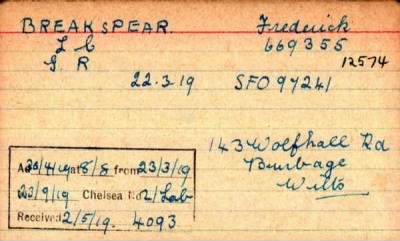 BREAKSPEAR. Frederick
L C 669355
G. R 12574
22.3.19 SFO 97241
143 Wolfhall Rd
Burbage
Wilts
at 8/8 from 23/3/19
23/9/19 Chelsea No 2/Lab
Received 2/5/19. 4093